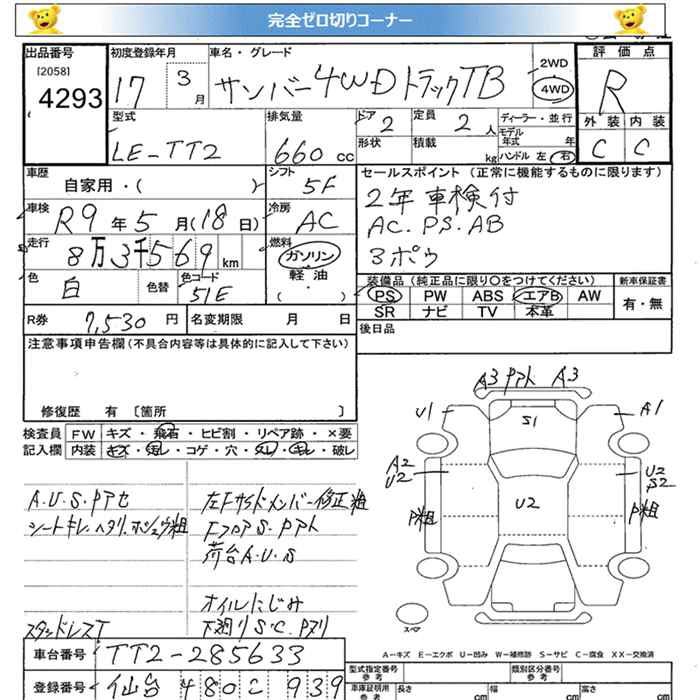 完全ゼロ切りコーナー
出品番号 初度登録年月 車名・グレード 評価点
[2058]
4293
17 3月 サンバー4WDトラックTB 2WD 4WD R
型式 排気量 ドア 2 定員 2人 ディーラー・並行 外装 内装
モデル年式 年
LE-TT2 660cc 形状 積載 kg ハンドル 左 右 C C
車歴 シフト セールスポイント(正常に機能するものに限ります)
自家用・( ) 5F 2年車検付
車検 R9年5月(18日) 冷房 AC AC. PS. AB
走行 8万3千569km 燃料 ガソリン 3ポウ
軽油
( ・ )
色 白 色替 色コード 51E 装備品(純正品に限り〇をつけてください) 新車保証書
PS PW ABS エアB AW 有・無
SR ナビ TV 本革
R券 7,530円 名変期限 月 日 後日品
注意事項申告欄(不具合内容等は具体的に記入して下さい)
修復歴 有 〔箇所 〕
検査員 FW キズ・飛石・ヒビ割・リペア跡・×要
記入欄 内装 キズ・汚レ・コゲ・穴・スレ・キレ・破レ
A3 Pアト A3
U1 S1 A1
A2
U2
U2
U2
S2
P粗 P粗
スペア
A・U・S・Pアセ 左Fサイドメンバー修正粗
シートキレ、ヘタリ、ホシュウ粗 FフロアS・Pアト
荷台A・U・S
オイルにじみ
スタッドレスT 下廻りS・C、Pヌリ
A-キズ E-エクボ U-凹み W-補修跡 S-サビ C-腐食 XX-交換済
車台番号 TT2-285633 型式指定番号 参考 類別区分番号 参考
登録番号 仙台 480 939 車庫証明用 参考 長さ cm 幅 cm 高さ cm